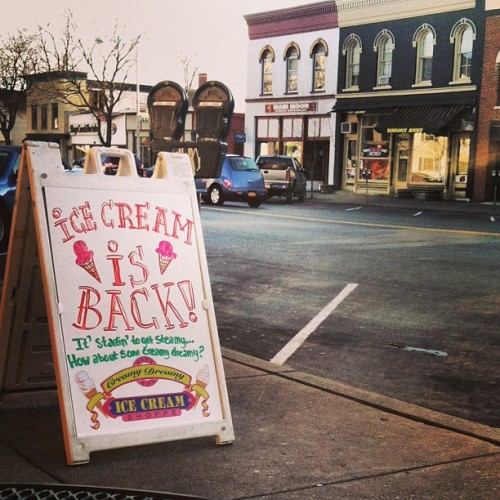 ICE CREAM
IS
BACK!
It' startin' to get steamy...
How about some creamy dreamy?
Creamy Dreamy
ICE CREAM
SHOPPE
MAIN MOON
SUNDANCE BOOKS